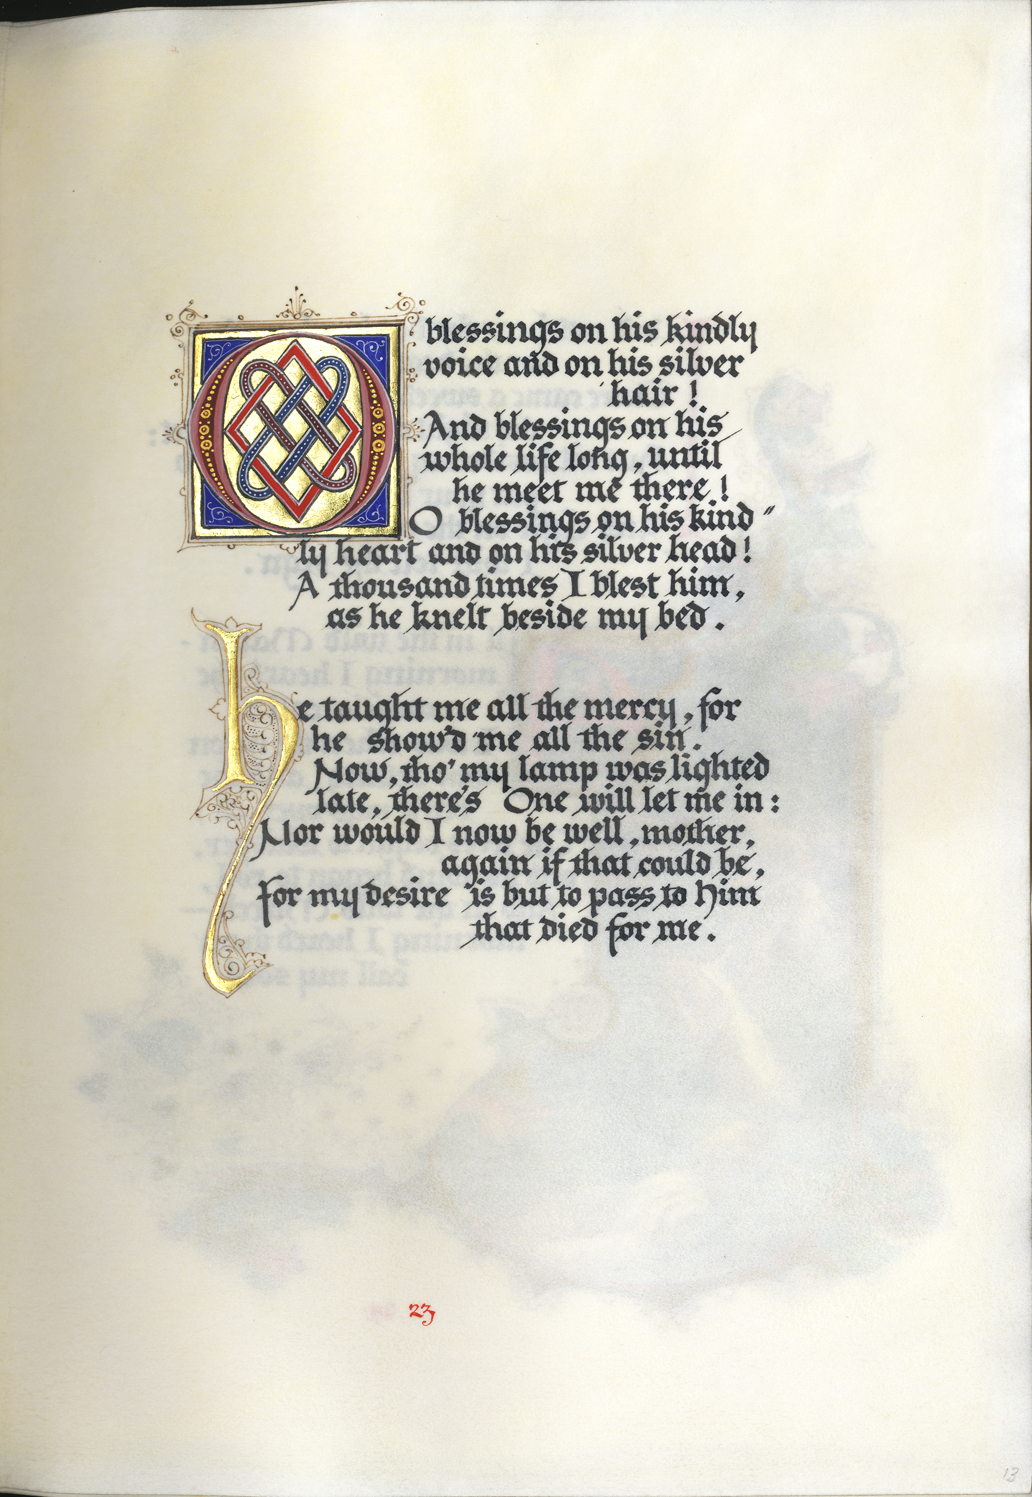 O blessings on his kindly
voice and on his silver
hair !
And blessings on his
whole life long, until
he meet me there !
O blessings on his kind "
ly heart and on his silver head !
A thousand times I blest him,
as he knelt beside my bed .
he taught me all the mercy, for
he show'd me all the sin .
Now, tho' my lamp was lighted
late, there's One will let me in :
Nor would I now be well, mother,
again if that could be,
For my desire is but to pass to Him
that died for me .
23
13